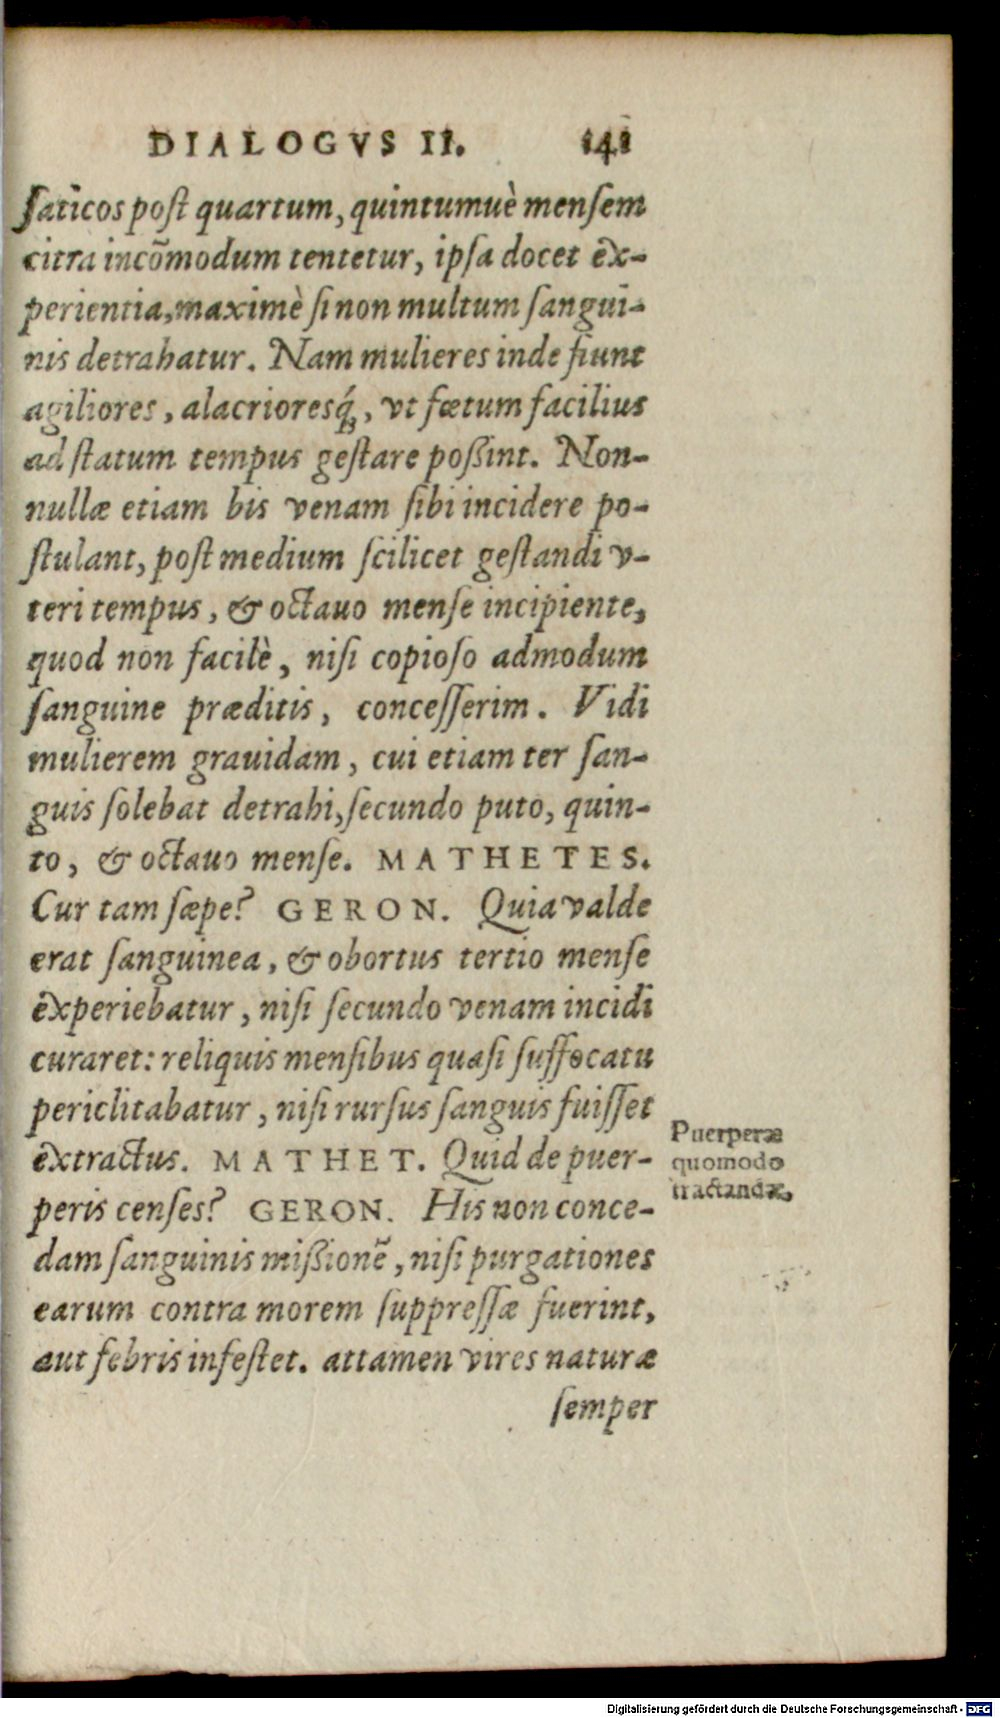 DIALOGVS II. 141
ſaticos poſt quartum, quintumuè menſem
citra incõmodum tentetur, ipſa docet ex-
perientia, maximè ſi non multum ſangui-
nis detrahatur. Nam mulieres inde fiunt
agiliores, alacrioresq́;, vt fœtum facilius
ad ſtatum tempus geſtare poßint. Non-
nullæ etiam bis venam ſibi incidere po-
ſtulant, poſt medium ſcilicet geſtandi v-
teri tempus, & octauo menſe incipiente,
quod non facilè, niſi copioſo admodum
ſanguine præditis, conceſſerim. Vidi
mulierem grauidam, cui etiam ter ſan-
guis ſolebat detrahi, ſecundo puto, quin-
to, & octauo menſe. MATHETES.
Cur tam ſæpe? GERON. Quia valde
erat ſanguinea, & obortus tertio menſe
experiebatur, niſi ſecundo venam incidi
curaret: reliquis menſibus quaſi ſuffocatu
periclitabatur, niſi rurſus ſanguis fuiſſet
extractus. MATHET. Quid de puer-
peris cenſes? GERON. His non conce-
dam ſanguinis mißionẽ, niſi purgationes
earum contra morem ſuppreſſæ fuerint,
aut febris infeſtet. attamen vires naturæ
ſemper
Puerperæ
quomodo
tractandæ.
Digitalisierung gefördert durch die Deutsche Forschungsgemeinschaft - DFG